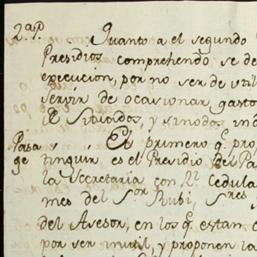 2.a p.e Quanto a el segundo
Presidios comprehendo se de
execucion, por no ser de util
servir de ocasionar gasto
de Situidos, y sinodos in
Pasa y El primero q.e prop
ge tinguir, es el Presidio de Pa
la Secretaria con R.l Cedula
mes del S.or Rubi, S.res
del Asesor, en los q.e estan c
por ser inutil, y proponen la